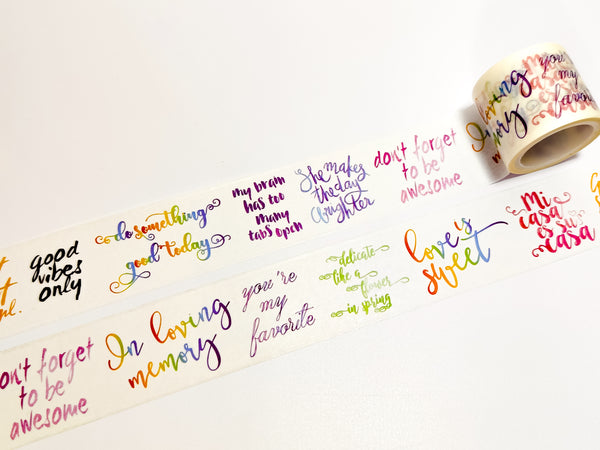 good
vibes
only
do something
good today
my brain
has too
many
tabs open
She makes
the day
brighter
don't forget
to be
awesome
In loving
memory
you're
my
favorite
don't forget
to be
awesome
In loving
memory
you're
my
favorite
delicate
like a
flower
in spring
love is
sweet
Mi
casa
es su
casa